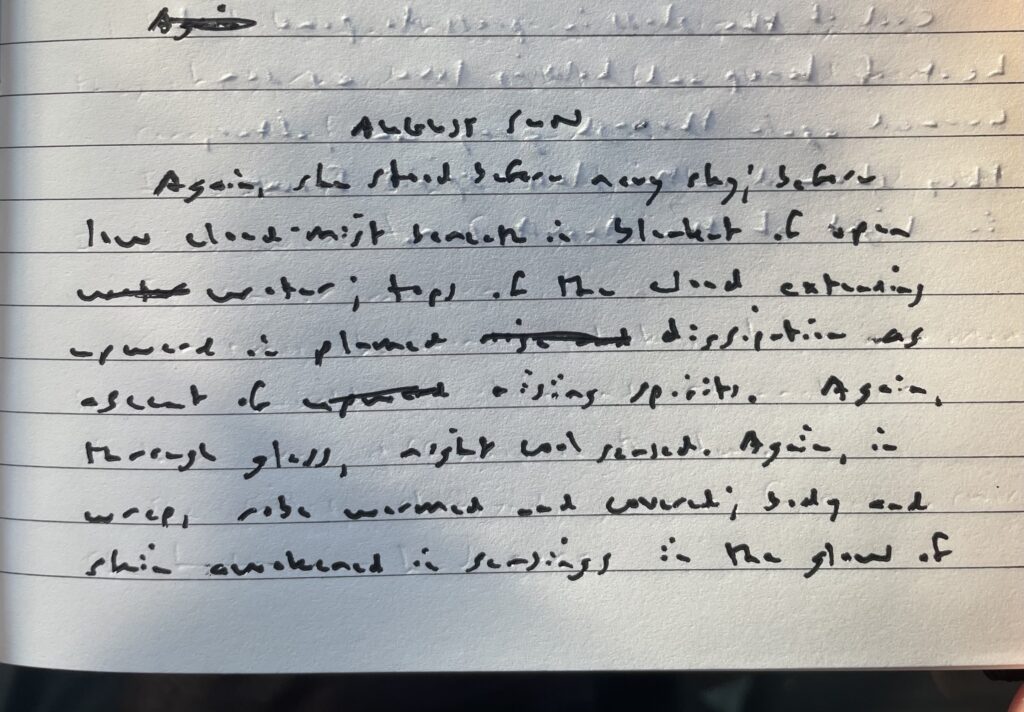 Again
AUGUST SUN
Again, she stood before navy sky; before
low cloud-mist beneath in blanket of open
water water; tops of the cloud extending
upward in plumed rise and dissipation as
ascent of upward rising spirits. Again,
through glass, night cool sensed. Again, in
wrap, robe warmed and covered; body and
skin awakened in sensings in the glow of